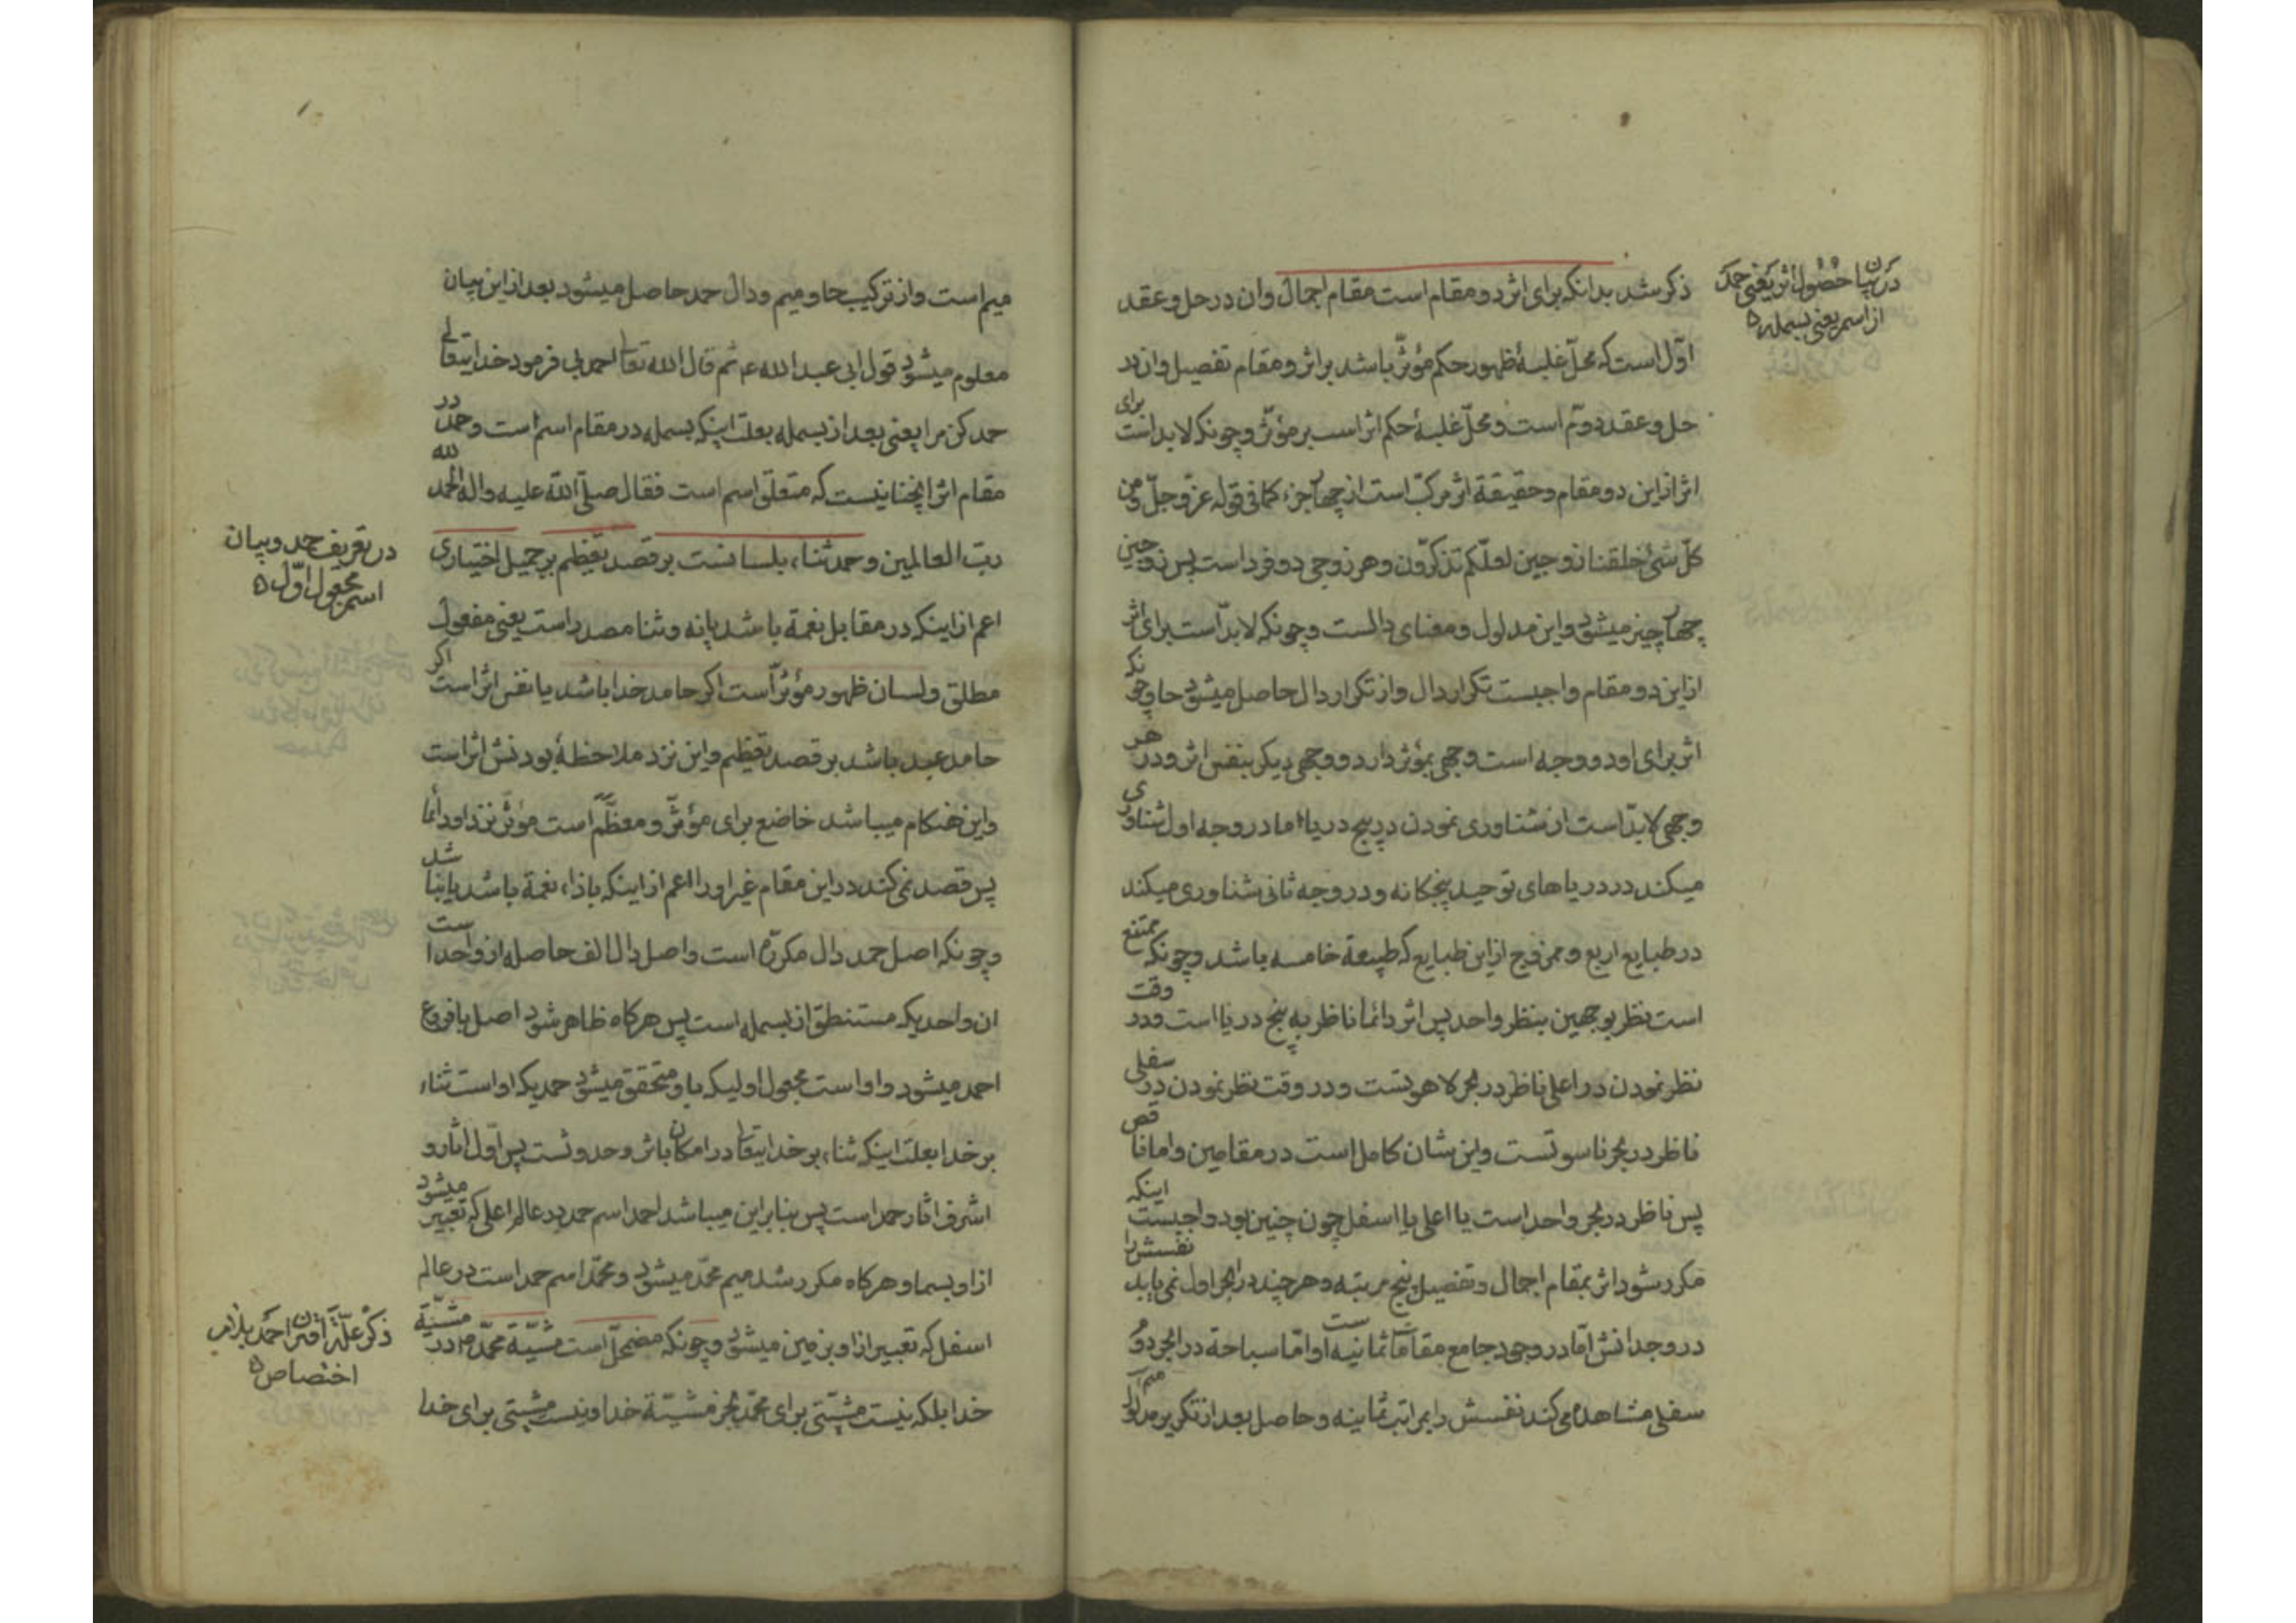 در بیان حصول اثر یعنی حمد
از اسم یعنی بسمله
ذکر شد بدانکه برای اثر دو مقام است مقام اجمال وان در حل و عقد
اوّل است که محلّ غلبهٔ ظهور حکم مؤثّر باشد بر اثر و مقام تفصیل وان در
حل و عقد دویّم است و محلّ غلبهٔ حکم اثر است بر مؤثّر و چونکه لابد است برای
اثر از این دو مقام و حقیقة اثر مرکّب است از چهار جزء کما فی قوله عزّ و جلّ و من
کلّ شیٔ خلقنا زوجین لعلّکم تذکّرون و هر زوجی دو فرد است پس زوجین
چهار چیز میشود و این مدلول و معنای دالست و چونکه لابدّ است برای اثر
از این دو مقام واجبست تکرار دال و از تکرار دال حاصل میشود حا و چونکه
اثر برای او دو وجه است وجهی بمؤثر دارد و وجهی دیکر بنفس اثر و در هر
وجهی لابدّ است از شناوری نمودن در پنج دریا اما در وجه اول شناوری
میکند در دریاهای توحید پنجکانه و در وجه ثانی شناوری میکند
در طبایع اربع و ممزوج از این طبایع که طبیعة خامسه باشد و چونکه ممتنع
است نظر بوجهین بنظر واحد پس اثر دائما ناظر به پنج دریا است و در وقت
نظر نمودن در اعلی ناظر در بحر لاهوتست و در وقت نظر نمودن در سفلی
ناظر در بحر ناسوتست و این شان کامل است در مقامین و اما ناقص
پس ناظر در بحر واحد است یا اعلی یا اسفل چون چنین بود واجبست اینکه
مکرر شود اثر بمقام اجمال و تفصیل پنج مرتبه و هر چند در ابحر اول نمی یابد نفسش را
در وجدانش امّا در وجود جامع مقامات ثمانیه است او امّا سباحة در ابحر دویم
سفلی مشاهده می کند نفسش را بمراتب ثمانیه و حاصل بعد از تکریر مدلول میم
میم است و از ترکیب حا و میم و دال حمد حاصل میشود بعد از این بیان
معلوم میشود قول ابی عبد الله ع ثم قال الله تعا احمدنی فرمود خدایتعالی
حمد کن مرا یعنی بعد از بسمله بعلت اینکه بسمله در مقام اسم است و حمد در
مقام اثر انچنانیست که متعلق اسم است فقال صلّی الله علیه و اله الحمد لله
ربّ العالمین و حمد ثناء بلسانست بر قصد تعظیم بر جمیل اختیاری
در تعریف حمد و بیان
اسم مجعول اوّل
اعم از اینکه در مقابل نعمة باشد یا نه و ثنا مصدر است یعنی مفعول
مطلق و لسان ظهور مؤثّر است اکر حامد خدا باشد یا نفس اثر است اکر
حامد عبد باشد بر قصد تعظیم و این نزد ملاحظهٔ بودنش اثر است
و این هنکام میباشد خاضع برای مؤثّر و معظّم است مؤثّر نزد او دائما
پس قصد نمی کند در این مقام غیر او را اعم از اینکه باذاء نعمة باشد یا نباشد
و چونکه اصل حمد دال مکرّره است و اصل دال الف حاصله از واحد است
ان واحدیکه مستنطق از بسمله است پس هرکاه ظاهر شود اصل با فروع
احمد میشود و او است مجعول اولیکه باو متحقق میشود حمدیکه او است ثناء
بر خدا بعلت اینکه ثناء بر خدایتعا در امکان باثر و حدوثست پس اوّل اثار و
اشرف اثار حمد است پس بنابراین میباشد احمد اسم حمد در عالم اعلی که تعبیر میشود
از او بسما و هرکاه مکرر شد میم محمّد میشود و محمّد اسم حمد است در عالم
اسفل که تعبیر از او بزمین میشود و چونکه مضمحلّ است مشیّة محمّد ص در مشیّة
ذکر علّة اقتران احمد بلام
اختصاص
خدا بلکه نیست مشیّتی برای محمّد بجز مشیّة خدا و نیست مشیّتی برای خدا